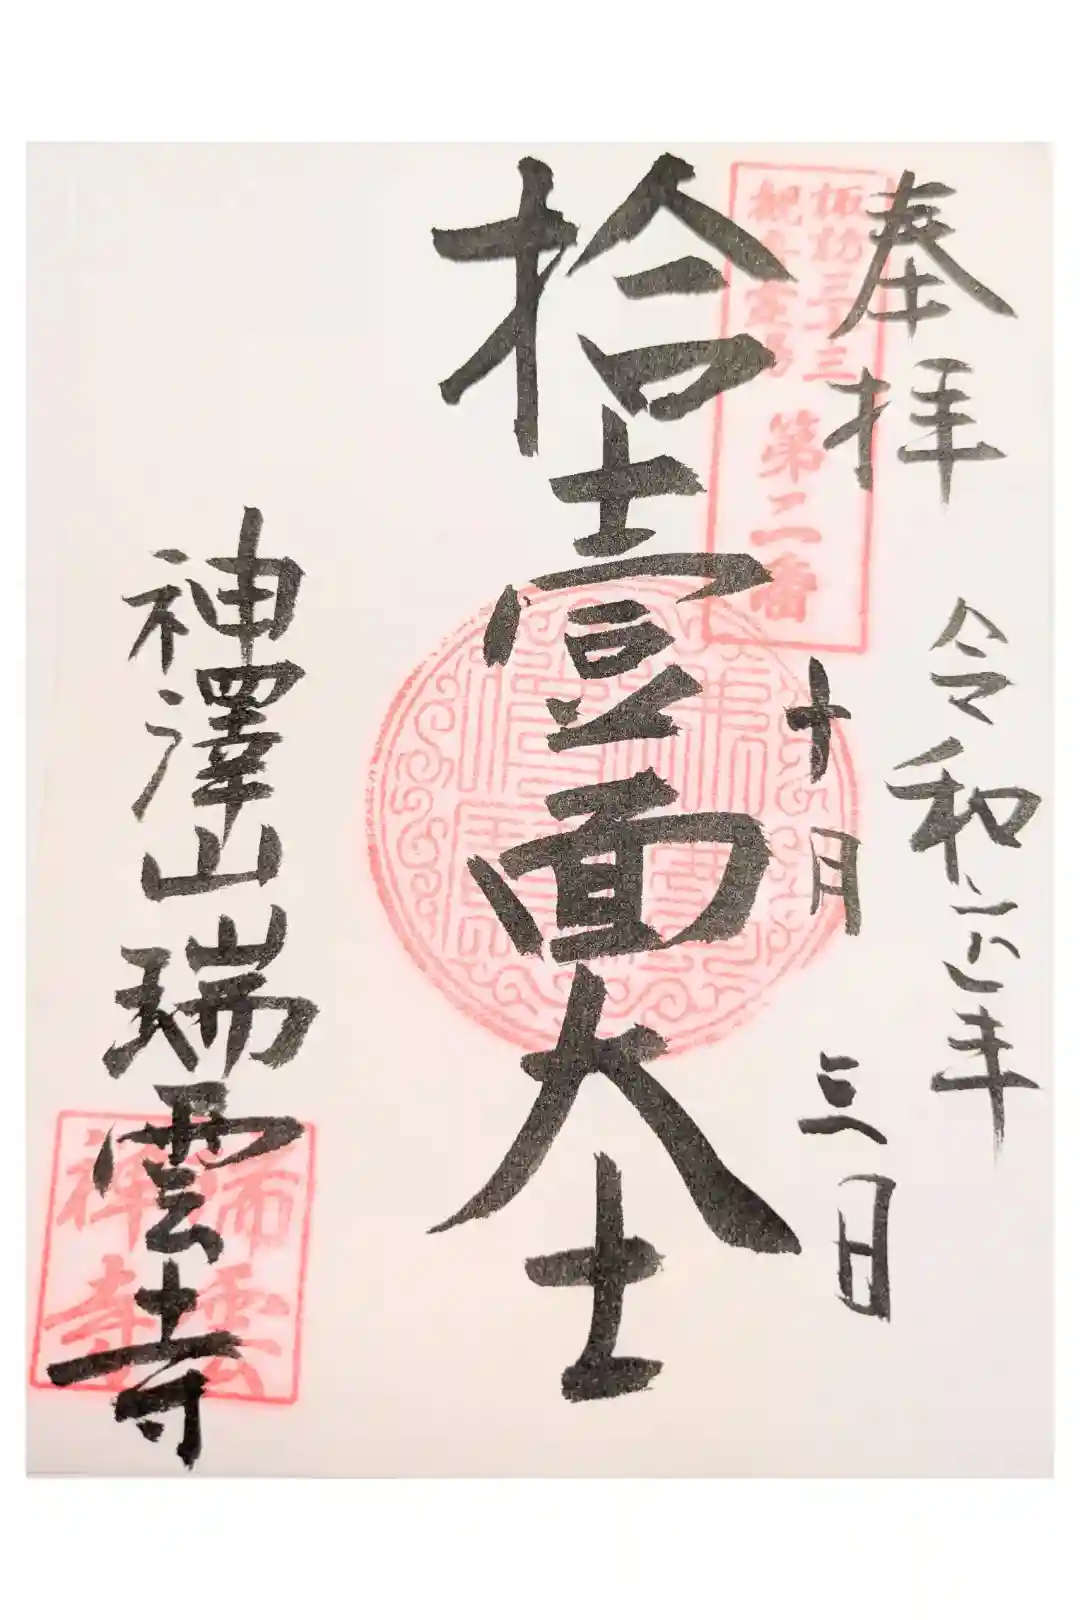 奉拝
令和六年
十月三日
諏訪三十三
観音霊場
第二番
拾壹面大士
神澤山瑞雲寺
瑞雲
禅寺